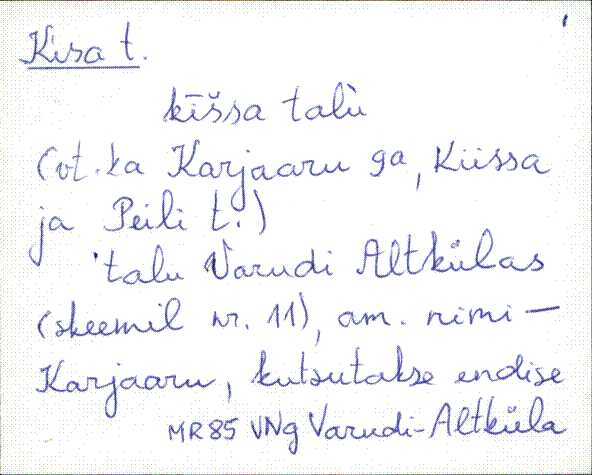 Kisa t.
kīšsa talù
(vt. ka Karjaaru ga, Kiissa
ja Peili t.)
'talu Varudi Altkülas
(skeemil nr. 11), am. nimi —
Karjaaru, kutsutakse endise
MR85 VNg Varudi-Altküla